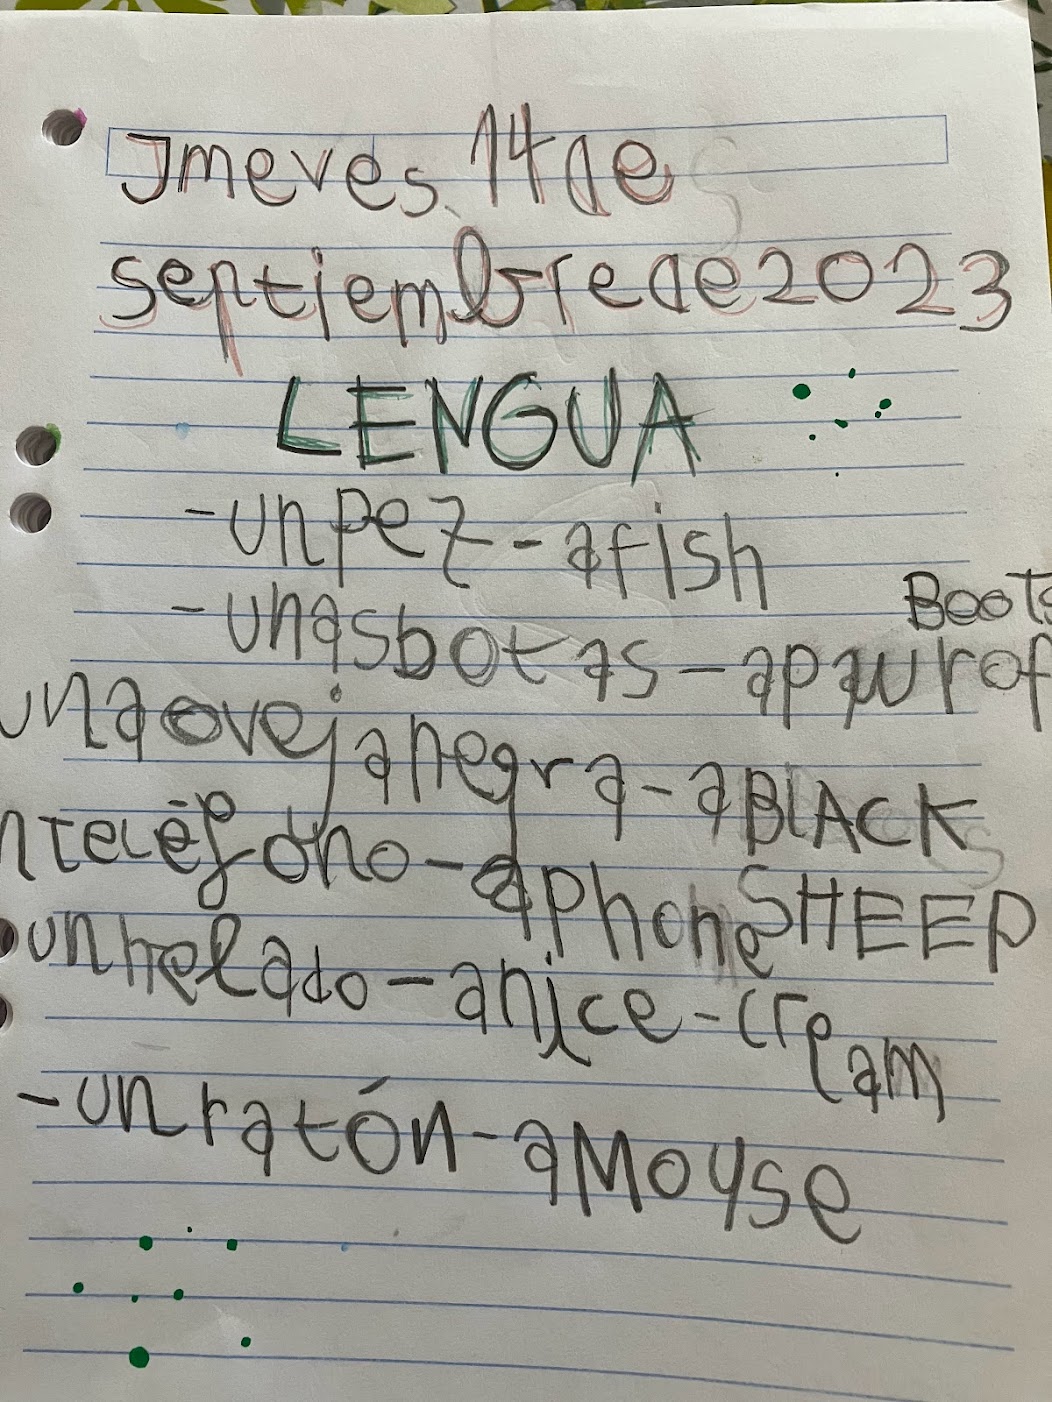 Jmeves 14 de
septiembre de 2023
LENGUA
- un pez - a fish
- unas botas - a paur of Boots
una oveja negra - a BlACK SHEEP
n teléfono - a phone
un helado - an ice-cream
- un ratón - a Moyse